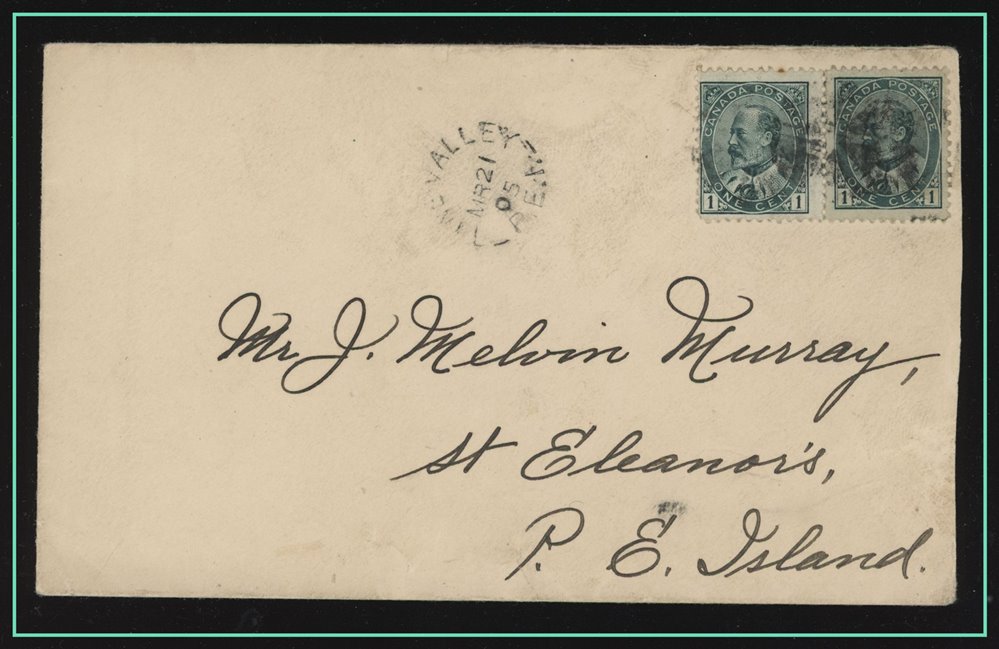 VALLEY
MR 21
05
P.E.I.
CANADA POSTAGE
1 ONE CENT 1
CANADA POSTAGE
1 ONE CENT 1
Mr J. Melvin Murray,
St Eleanor's,
P. E. Island.